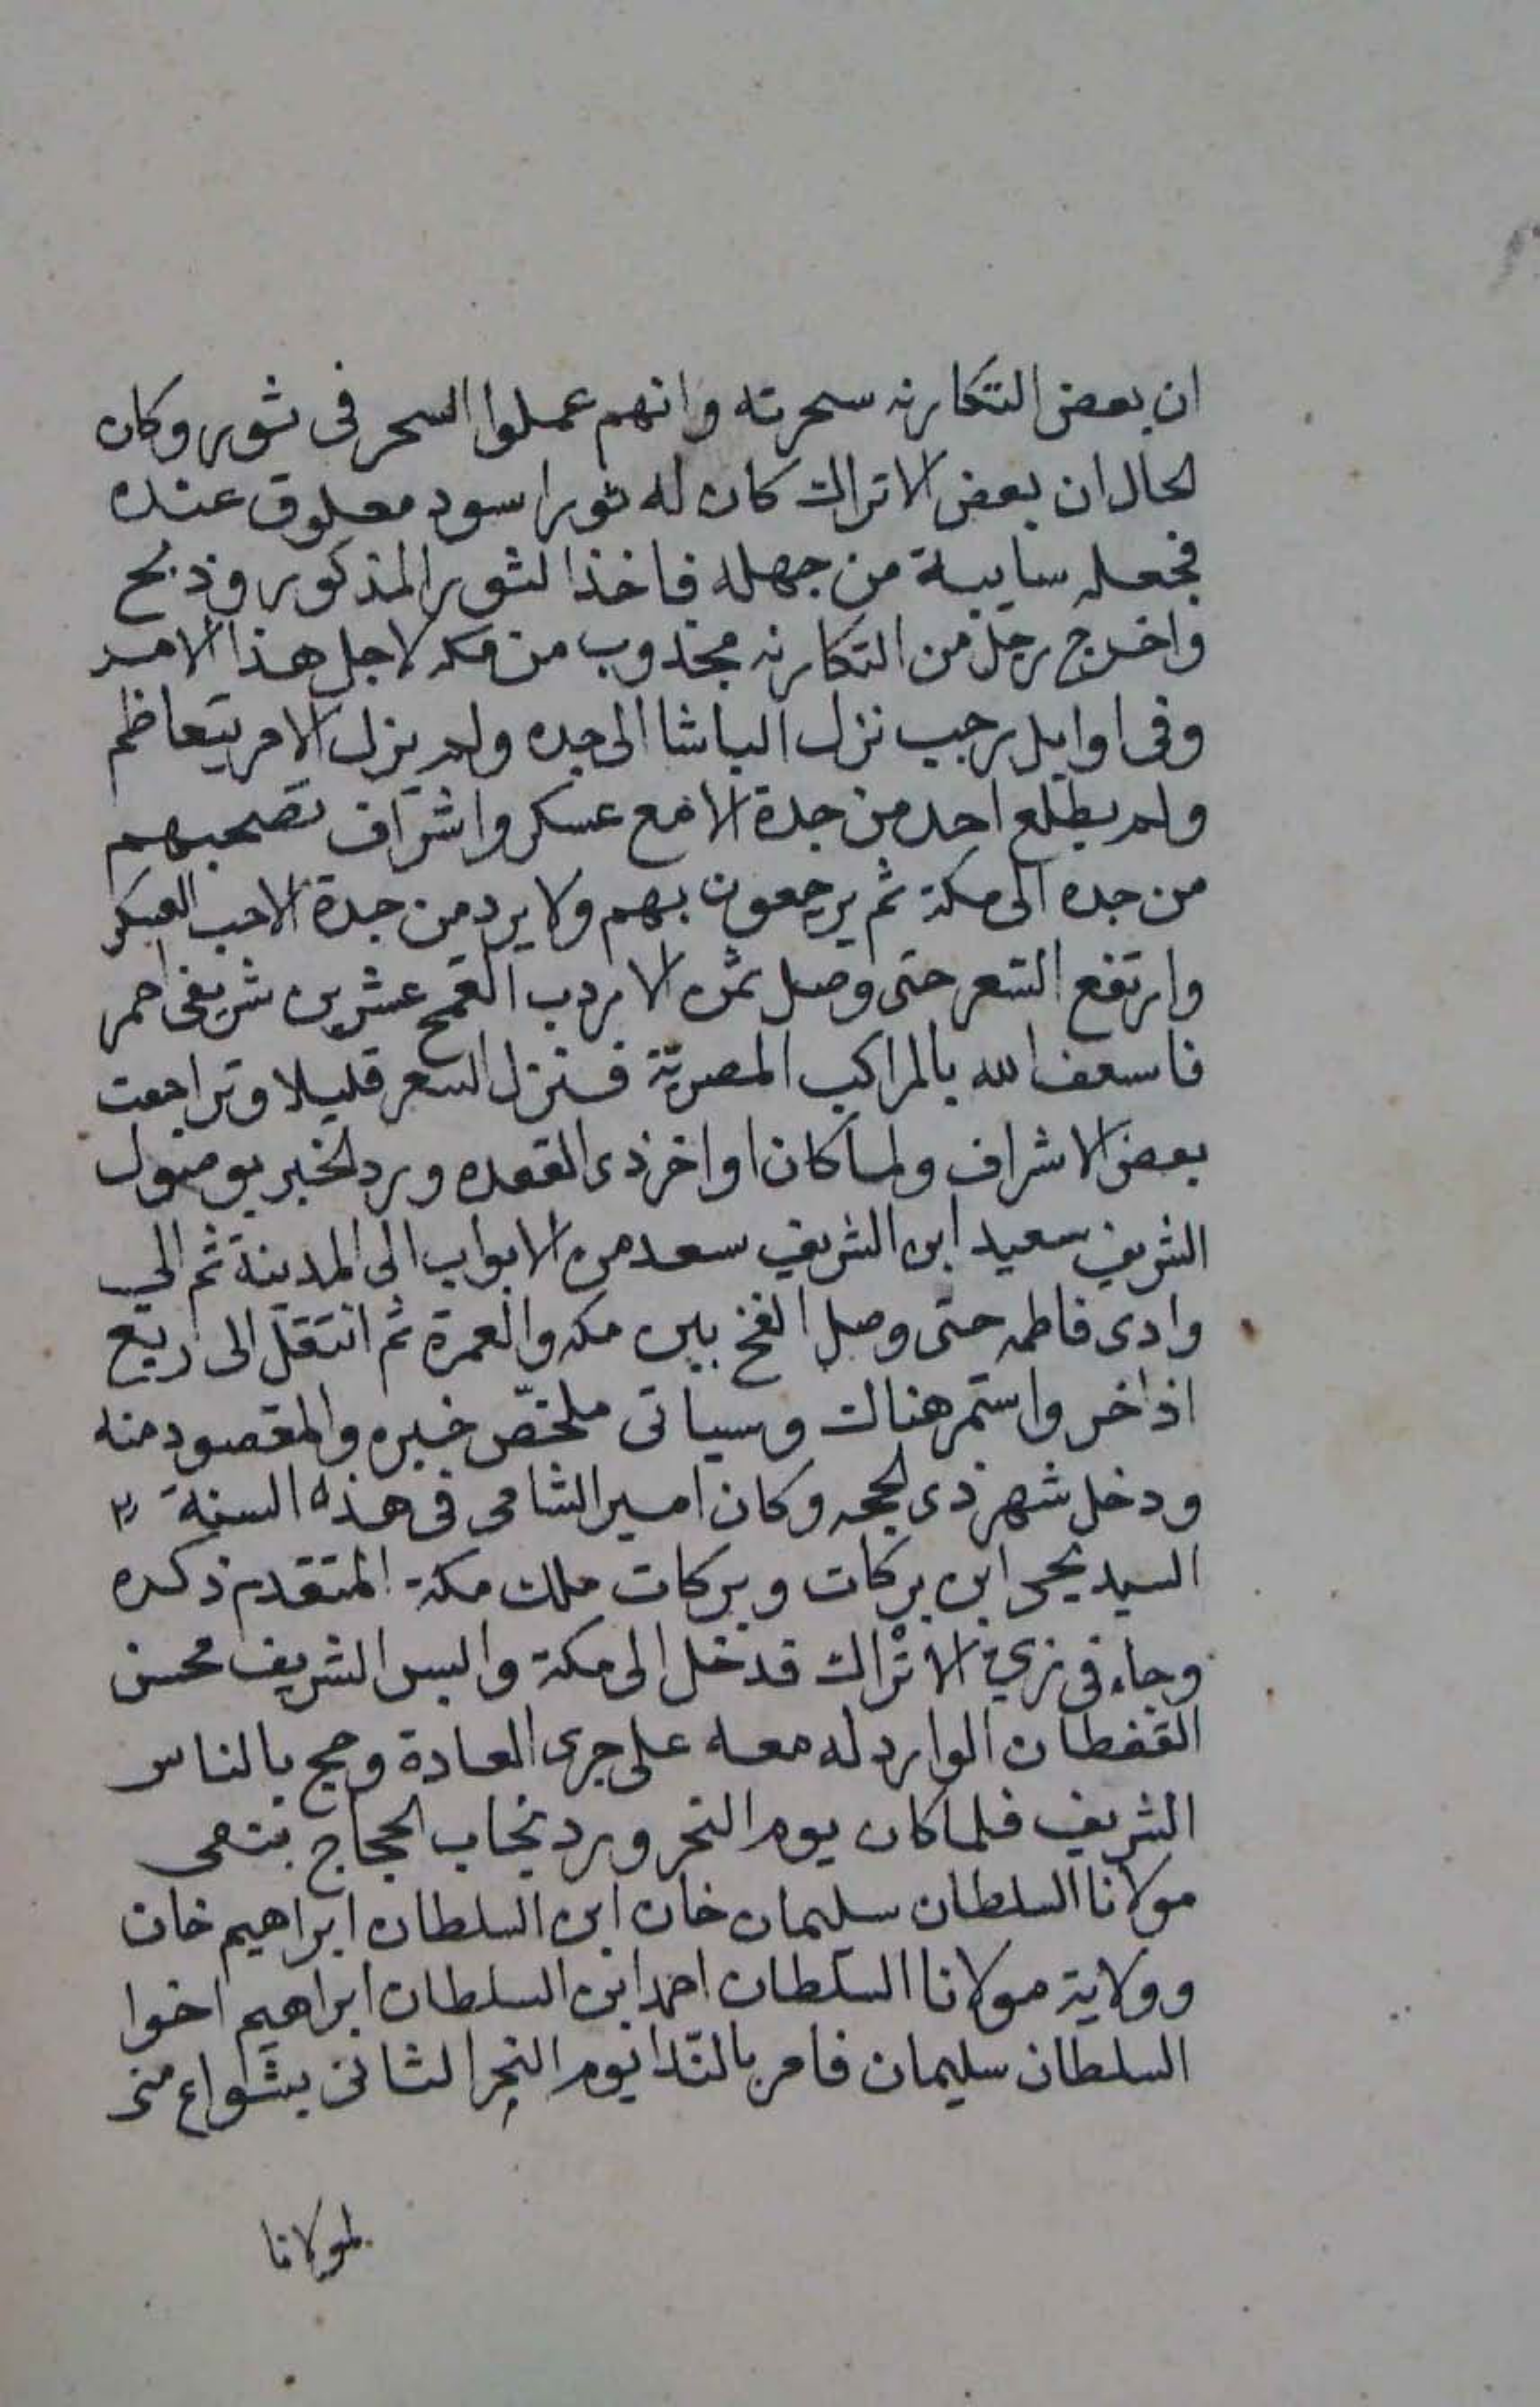 ان بعض التكارنه سحرته وانهم عملوا السحر في ثور وكان
لحال ان بعض الاتراك كان له ثور اسود معلوق عنده
فجعله سايبة من جهله فاخذ الثور المذكور وذبح
واخرج رجل من التكارنه مجذوب من مكه لاجل هذا الامر
وفى اوايل رجب نزل الباشا الى جده ولم يزل الامر يتعاظم
ولم يطلع احد من جدة الا مع عسكر واشراف تصحبهم
من جده الى مكة ثم يرجعون بهم ولا يرد من جدة الا حب العسكر
وارتفع السعر حتى وصل ثمن الاردب القمح عشرين شريفى احمر
فاسعف الله بالمراكب المصرية فنزل السعر قليلا وتراجعت
بعض الاشراف ولما كان اواخر ذى القعده ورد الخبر بوصول
الشريف سعيد ابن الشريف سعد من الابواب الى المدينة ثم الى
وادى فاطمه حتى وصل الفخ بين مكه والعمرة ثم انتقل الى ريع
اذاخر واستمر هناك وسياتى ملخّص خبره والمقصود منه
ودخل شهر ذى لحجه وكان امير الشامى فى هذه السنة
السيد يحى ابن بركات وبركات ملك مكة المتقدم ذكره
وجاء فى زي الاتراك فدخل الى مكة والبس الشريف محسن
القفطان الوارد له معه على جرى العادة وحج بالناس
الشريف فلما كان يوم النحر ورد نجاب الحجاج بنعى
مولانا السلطان سليمان خان ابن السلطان ابراهيم خان
وولاية مولانا السلطان احمد ابن السلطان ابراهيم اخوا
السلطان سليمان فامر بالندا يوم النحر الثانى بشوارع منى
لمولانا